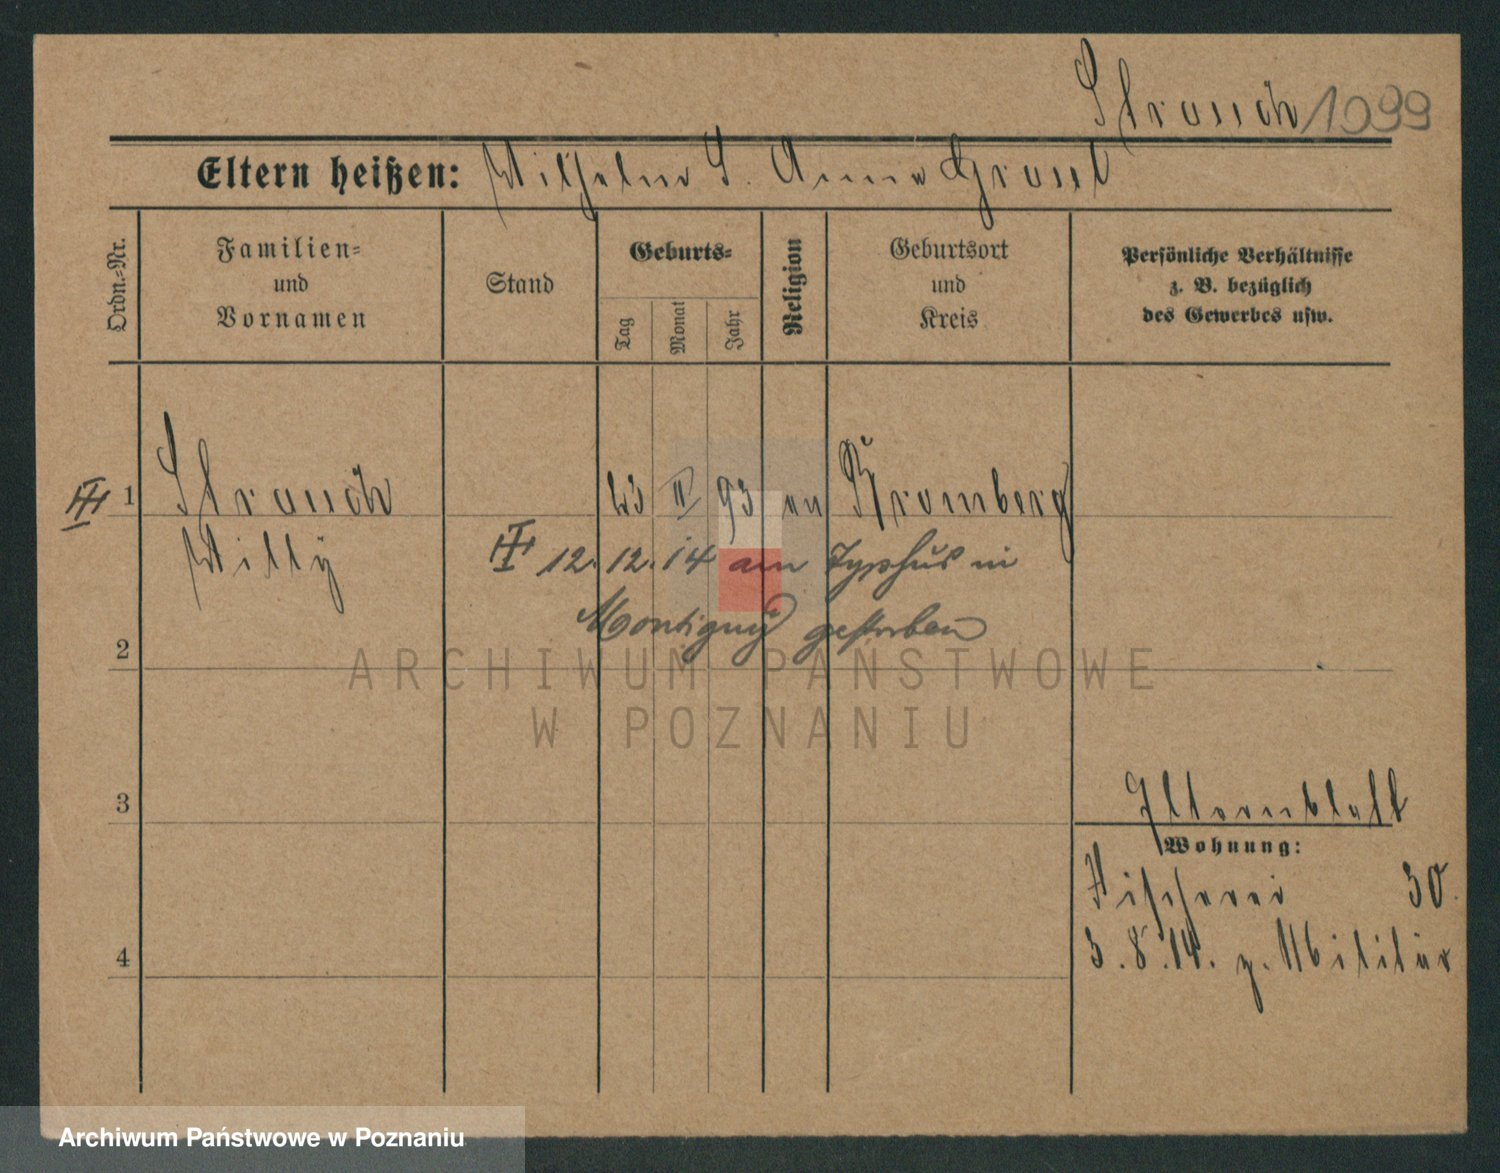 Strauch 1099
Eltern heißen: Wilhelm S. Anna
Ordn.-Nr.
Familien-
und
Vornamen
Stand
Geburts-
Tag
Monat
Jahr
Religion
Geburtsort
und
Kreis
Persönliche Verhältnisse
z. B. bezüglich
des Gewerbes usw.
1 Strauch 23 II 93 ev Bromberg
Willy
12.12.14 am Typhus in
Montigny gestorben
2
ARCHIWUM PAŃSTWOWE
W POZNANIU
3
Elternblatt
Wohnung:
Fischerei 30.
4
3.8.14. z. Militär
Archiwum Państwowe w Poznaniu